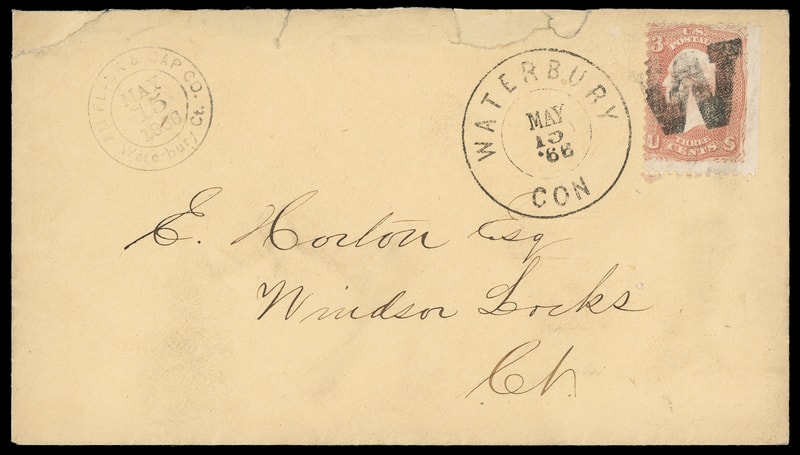 AM. FLASK & CAP CO.
MAY
15
1866
Waterbury Ct.
WATERBURY
MAY
15
'66
CON
3
U.S.
POSTAGE
W
U
THREE
CENTS
S
E. Horton Esq
Windsor Locks
Ct.